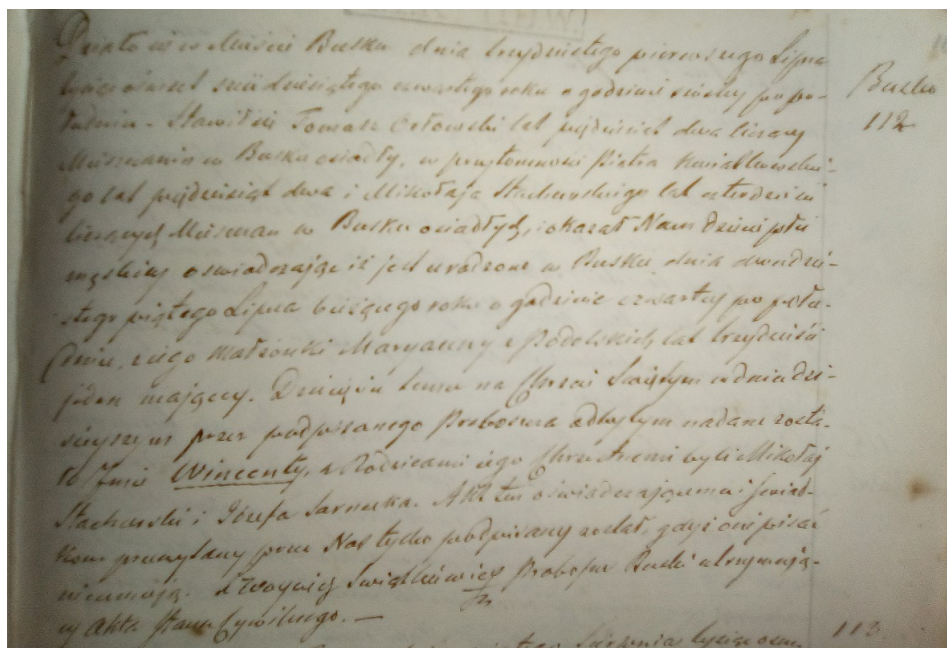 Działo się w Mieście Busku dnia trzydziestego pierwszego Lipca
tysiąc ośmset sześćdziesiątego czwartego roku o godzinie po po-
łudniu. Stawił się Tomasz Orłowski lat pięćdziesiąt dwa liczący
Mieszczanin w Busku osiadły, w przytomności Piotra Kwiatkowskie-
go lat pięćdziesiąt dwa i Mikołaja Stachurskiego lat czterdzieści
liczących Mieszczan w Busku osiadłych, i okazał Nam dziecie płci
męskiej oświadczając iż jest urodzone w Busku dnia dwudzie-
stego piątego Lipca bieżącego roku o godzinie czwartej po połu-
dniu, z jego Małżonki Maryanny z Podolskich, lat trzydzieści
jeden mającej. Dziecięciu temu na Chrzcie Świętym w dniu dzi-
siejszym przez podpisanego Proboszcza odbytym nadane zosta-
ło Imie Wincenty, a Rodzicami jego Chrzestnemi byli Mikołaj
Stachurski i Józefa Sarnecka. Akt ten oświadczającemu i świad-
kom przeczytany przez Nas tylko podpisany został, gdyż oni pisać
nieumieją. X Świątkiewicz Proboszcz Buski utrzymują-
cy Akta Stanu Cywilnego. —
Busko
112
Sierpnia tysiąc ośm
113